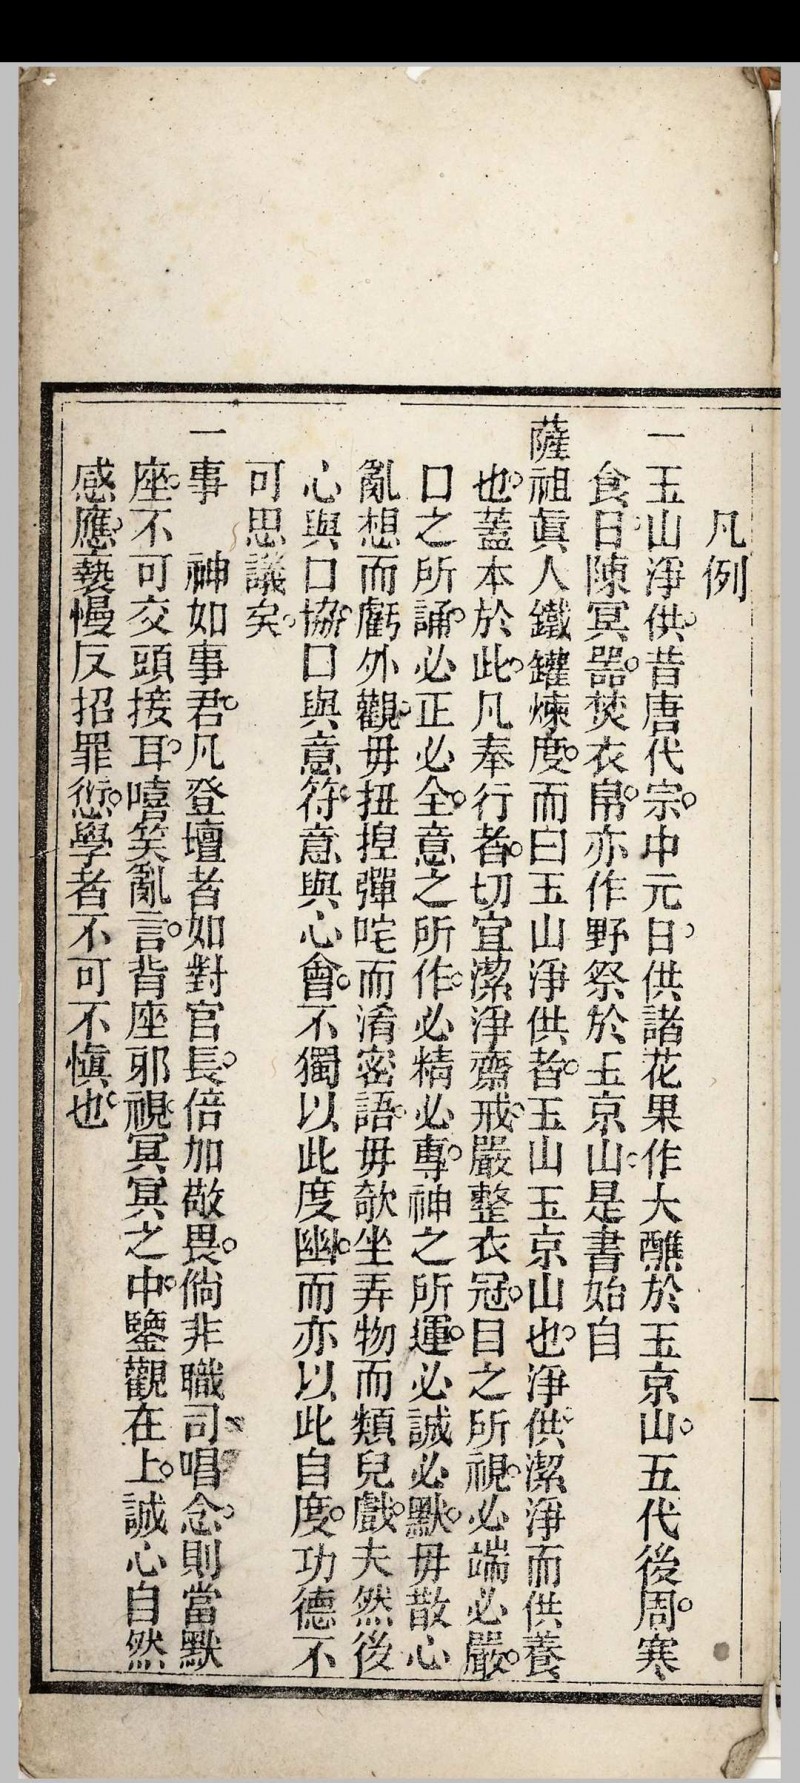 凡例
一玉山淨供。昔唐代宗。中元日。供諸花果作大醮於玉京山。五代後周。寒
食日。陳冥器。焚衣帛。亦作野祭於玉京山。是書始自
薩祖眞人鐵鑵煉度。而曰玉山淨供者。玉山玉京山也。淨供潔淨而供養
也。蓋本於此。凡奉行者。切宜潔淨齋戒。嚴整衣冠。目之所視。必端必嚴。
口之所誦。必正必全。意之所作。必精必專。神之所運。必誠必默。毋散心
亂想而虧外觀。毋扭揑彈咤而淆密語。毋欹坐弄物而類兒戲。夫然後
心與口協。口與意符。意與心會。不獨以此度幽。而亦以此自度。功德不
可思議矣。
一事　神如事君。凡登壇者如對官長。倍加敬畏。倘非職司唱念。則當默
座。不可交頭接耳。嘻笑亂言。背座邪視。冥冥之中。鑒觀在上。誠心自然
感應。褻慢反招罪愆。學者不可不愼也。